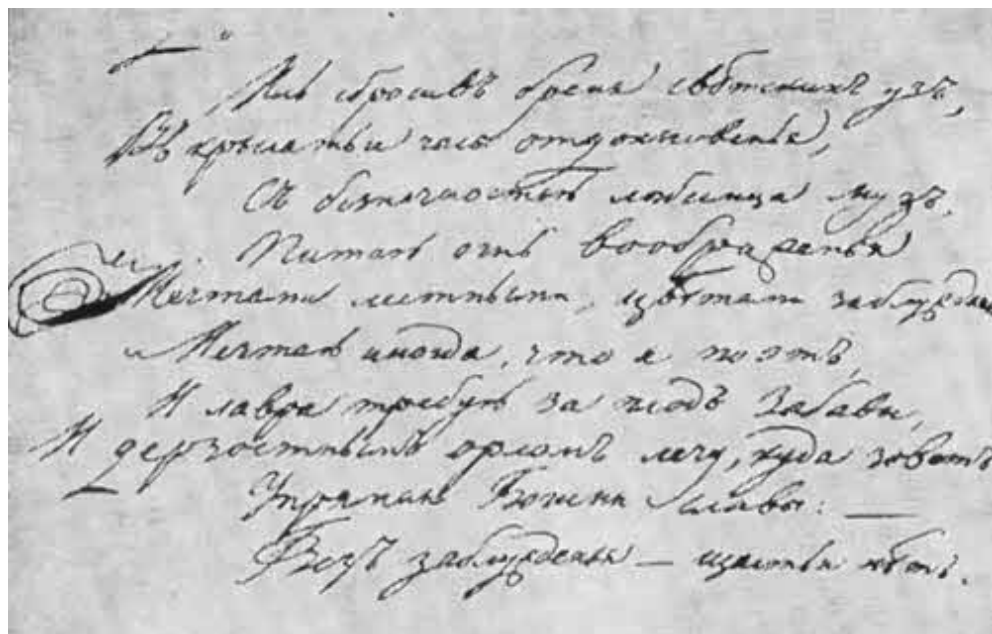 Какъ сбросивъ бремя свѣтскихъ узъ,
Въ крылатые часы отдохновенья,
Съ безпечностью любимца музъ,
Питаю огнь воображенья
Мечтами лестными, цвѣтами заблужденья
Мечтаю иногда, что я поэтъ,
И лавра требую за плодъ забавы,
И дерзостнымъ орломъ лечу, куда зоветъ
Упрямая Богиня славы: —
Безъ заблужденья — щастья нѣтъ.